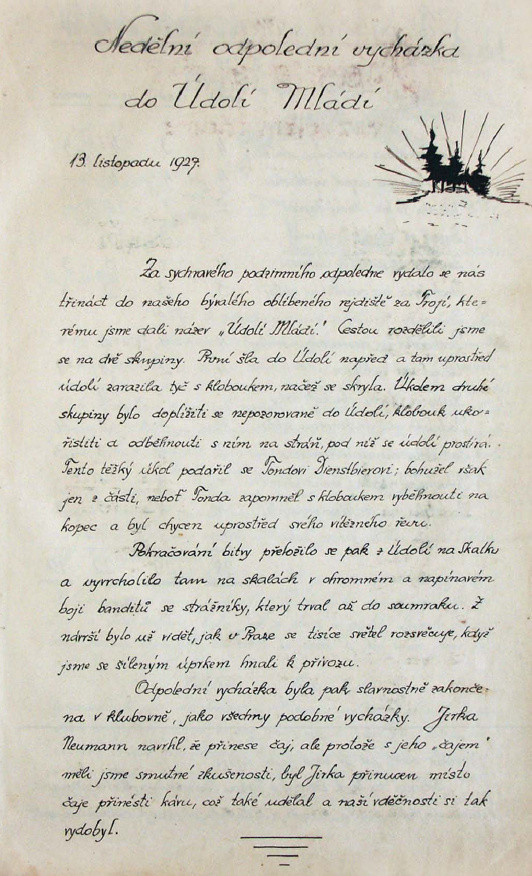 Nedělní odpolední vycházka
do Údolí Mládí
13. listopadu 1927.
Za sychravého podzimního odpoledne vydalo se nás
třináct do našeho bývalého oblíbeného rejdiště za Trojí, kte-
rému jsme dali název „Údolí Mládí.“ Cestou rozdělili jsme
se na dvě skupiny. První šla do Údolí napřed a tam uprostřed
údolí zarazila tyč s kloboukem, načež se skryla. Úkolem druhé
skupiny bylo doplížiti se nepozorovaně do Údolí, klobouk uko-
řistiti a odběhnouti s ním na stráň, pod níž se údolí prostírá.
Tento těžký úkol podařil se Tondovi Dienstbierovi; bohužel však
jen z části, neboť Tonda zapomněl s kloboukem vyběhnouti na
kopec a byl chycen uprostřed svého vítězného řevu.
Pokračování bitvy přeložilo se pak z Údolí na Skalku
a vyvrcholilo tam na skalách v ohromném a napínavém
boji banditů se strážníky, který trval až do soumraku. Z
návrší bylo už vidět, jak v Praze se tisíce světel rozsvěcuje, když
jsme se šíleným úprkem hnali k přívozu.
Odpolední vycházka byla pak slavnostně zakonče-
na v klubovně, jako všechny podobné vycházky. Jirka
Neumann navrhl, že přinese čaj, ale protože s jeho „čajem“
měli jsme smutné zkušenosti, byl Jirka přinucen místo
čaje přinésti kávu, což také udělal a naší vděčnosti si tak
vydobyl.